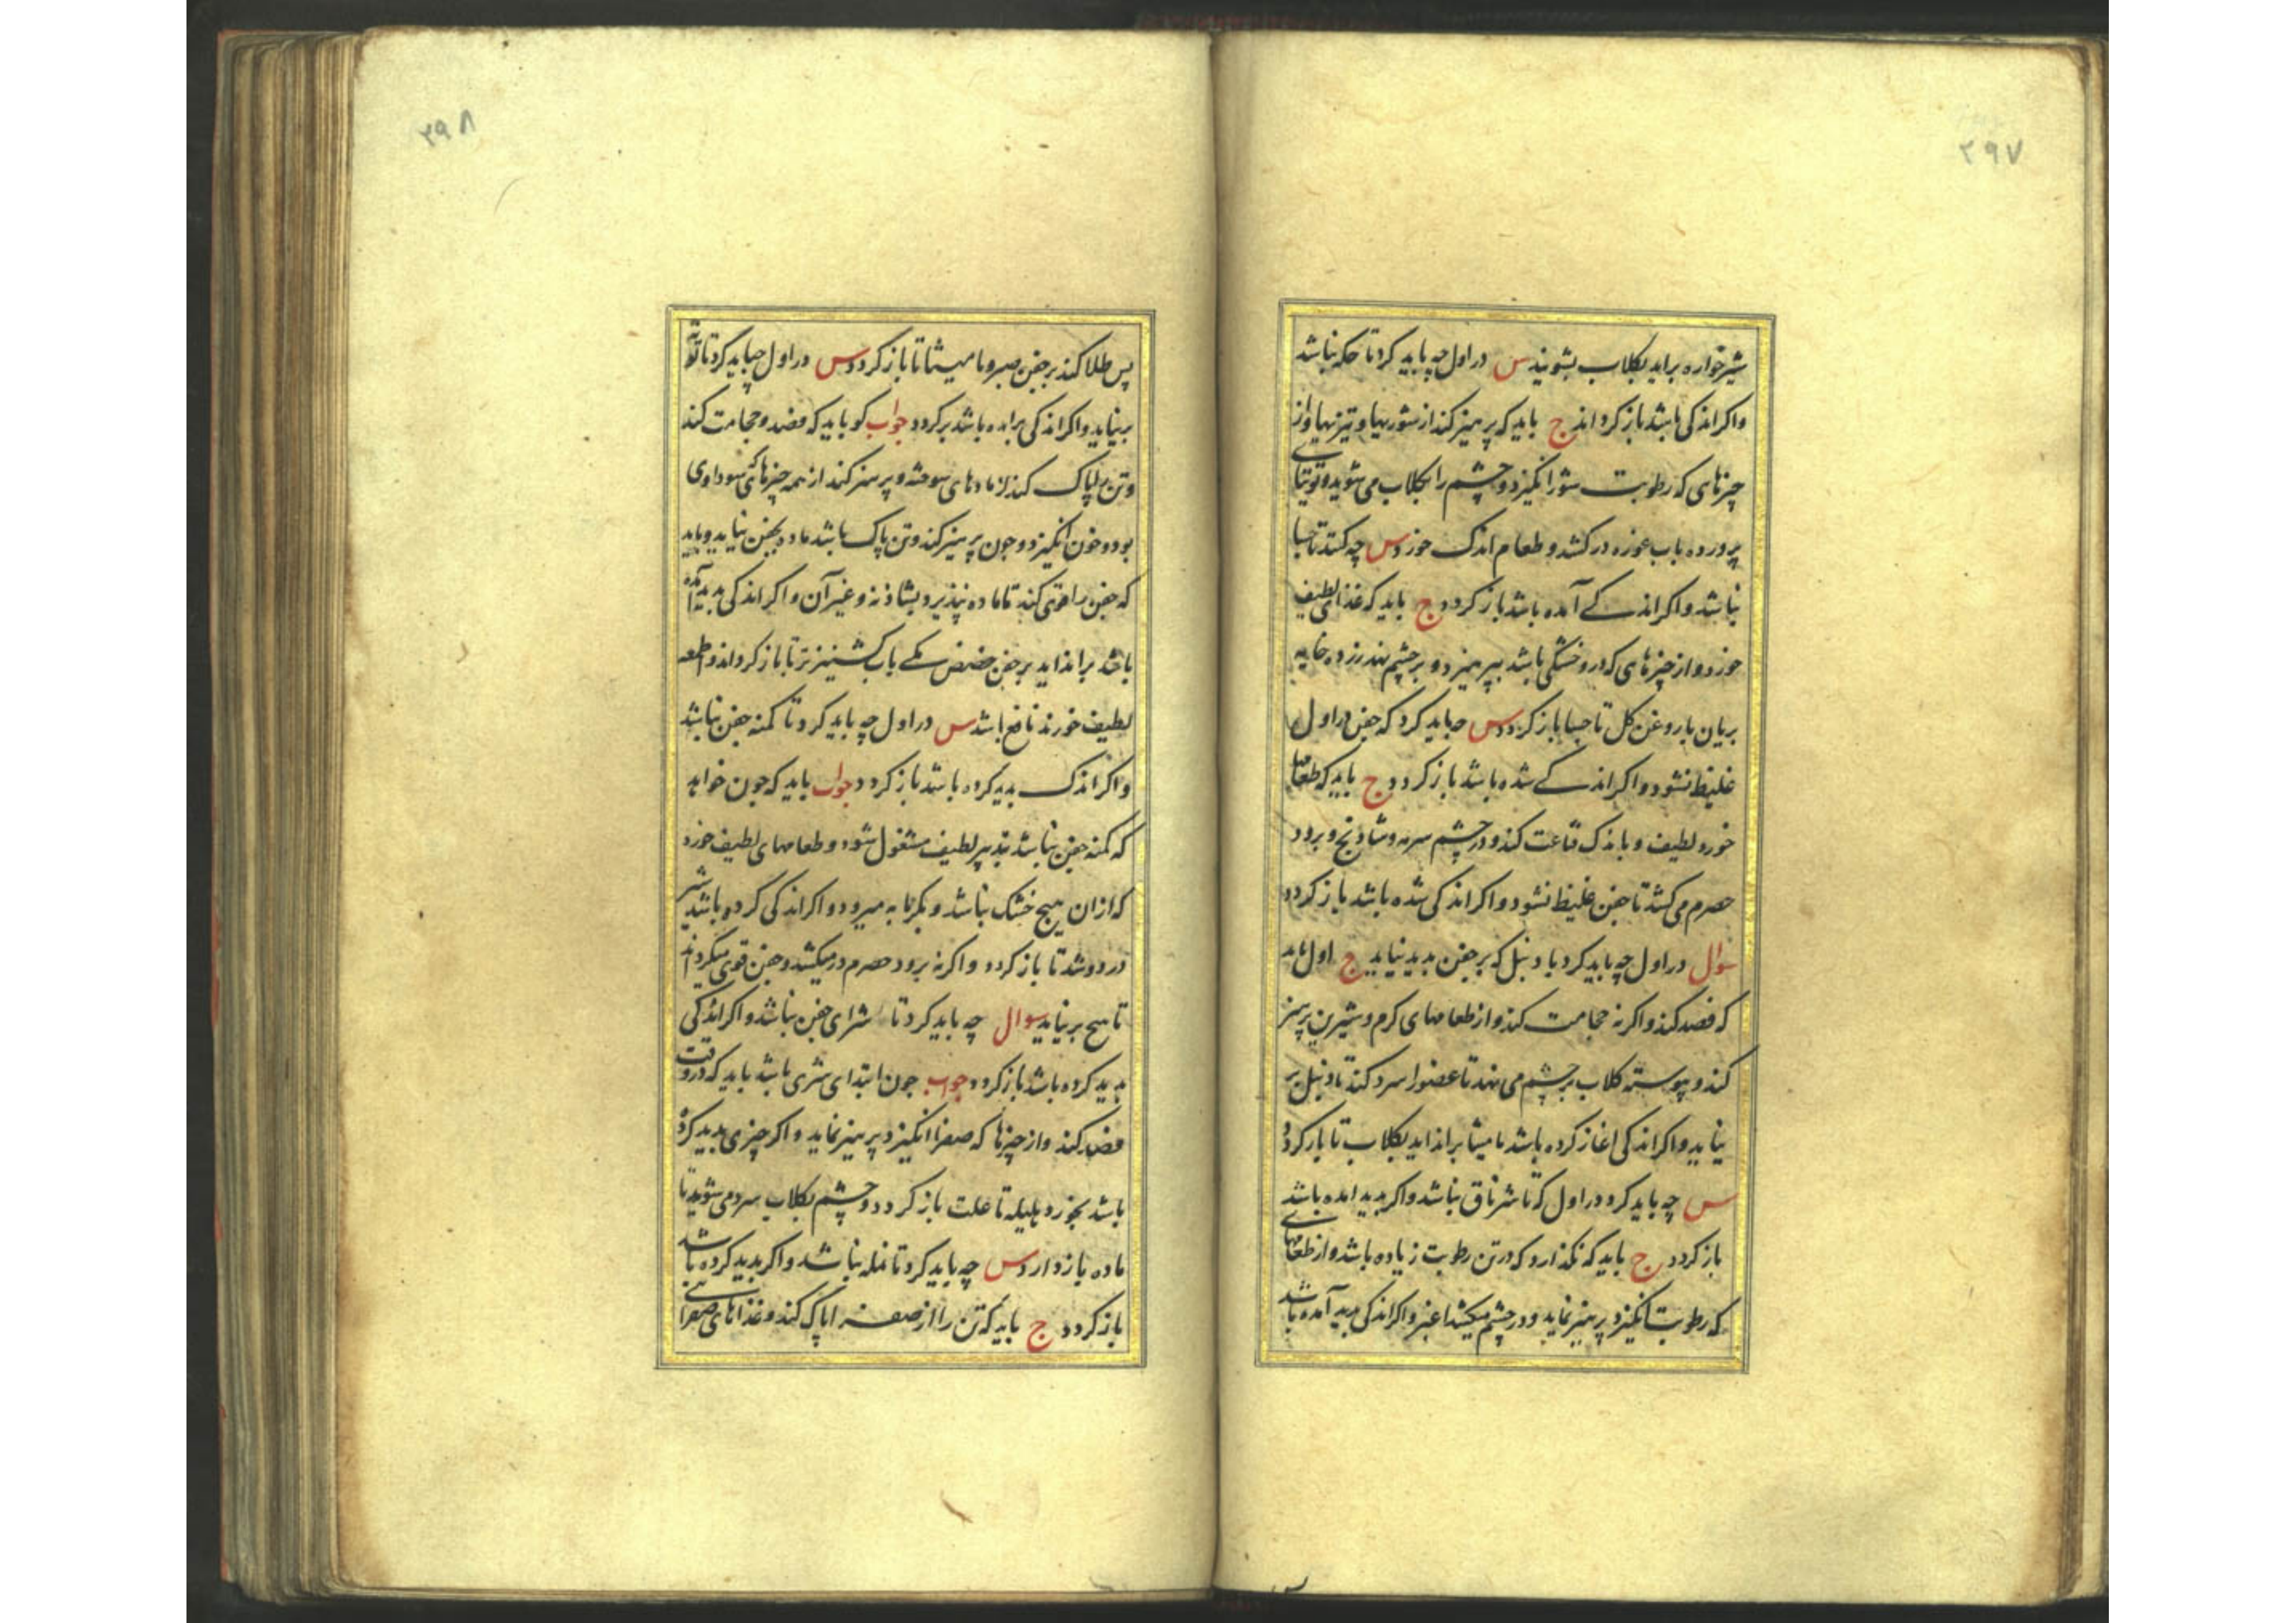 ۲۹۷
شیرخواره براید بکلاب بشویند س در اول چه باید کرد تا حکه نباشد
واکر اندکی باشد باز کرداند ج باید که پرهیز کند از شوریها و تیزیها و از
چیزهای که رطوبت شور انکیزد و چشم را بکلاب می شوید و توتیای
پرورده باب غوره درکشد و طعام اندک خورد س چه کند تا جسا
نباشد واکر اندکے آمده باشد باز کردد ج باید که غذای لطیف
خورد و از چیزهای که درو خشکی باشد بپرهیزد و بر چشم نهد زرده خایه
بریان با روغن کل تا جسا باز کردد س چه باید کرد که جفن در اول
غلیظ نشود و اکر اندکے شده باشد باز کردد ج باید که طعامها
خورد لطیف و باندک قناعت کند و در چشم سرمه و شادنج و برود
حصرم می کشد تا جفن غلیظ نشود و اکر اندکی شده باشد باز کردد
سوال در اول چه باید کرد با دنبل که بر جفن بدید نیاید ج اول باید
که فصد کند و اکر نه حجامت کند و از طعامهای کرم و شیرین پرهیز
کند و پیوسته کلاب بر چشم می نهد تا عضو را سرد کند تا دنبل بر
نیاید و اکر اندکی اغاز کرده باشد مامیثا براندايد بکلاب تا باز کردد
س چه باید کرد در اول که تا شرناق نباشد و اکر بدید امده باشد
باز کردد ج باید که نکذارد که در تن رطوبت زیاده باشد و از طعامهای
که رطوبت انکیزد پرهیز نماید و در چشم میکشد اغبر و اکر اندکی بدید آمده باشد
۲۹۸
پس طلا کند بر جفن صبر و مامیثا تا باز کردد س در اول چه باید کرد تا توته
برنیاید و اکر اندکی برامده باشد برکردد جواب کو باید که فصد و حجامت کند
و تن را پاک کند از مادهای سوخته و پرهیز کند از همه چیزهای که سوداوی
بود و خون انکیزد و چون پرهیز کند و تن پاک باشد ماده بجفن نیاید و باید
که جفن را قوی کند تا ماده نپذیرد بشاذنه و غیر آن و اکر اندکی بدید آمده
باشد براندايد بر جفن حضض مکے باب کشنیز تر تا باز کرداند و اطعمه
لطیف خورند نافع باشد س در اول چه باید کرد تا کمنه جفن نباشد
و اکر اندک بدید کرده باشد باز کردد جواب باید که چون خواهد
که کمنه جفن نباشد بتدبیر لطیف مشغول شود و طعامهای لطیف خورد
که ازان هیچ خشک نباشد و بکرمابه میرود و اکر اندکی کرده باشد شیر
در دوشد تا باز کردد و اکر نه برود حصرم در میکشد و جفن قوی میکرداند
تا هیچ برنیاید سوال چه باید کرد تا شرای جفن نباشد و اکر اندکی
بدید کرده باشد باز کردد جواب چون ابتدای شری باشد باید که در وقت
فصد کند و از چیزها که صفرا انکیزد پرهیز نماید و اکر چیزی بدید کرده
باشد بخورد هلیله تا علت باز کردد و چشم بکلاب سرد می شوید تا
ماده باز دارد س چه باید کرد تا نمله نباشد و اکر بدید کرده باشد
باز کردد ج باید که تن را از صفرا پاک کند و غذاهای صفرائے